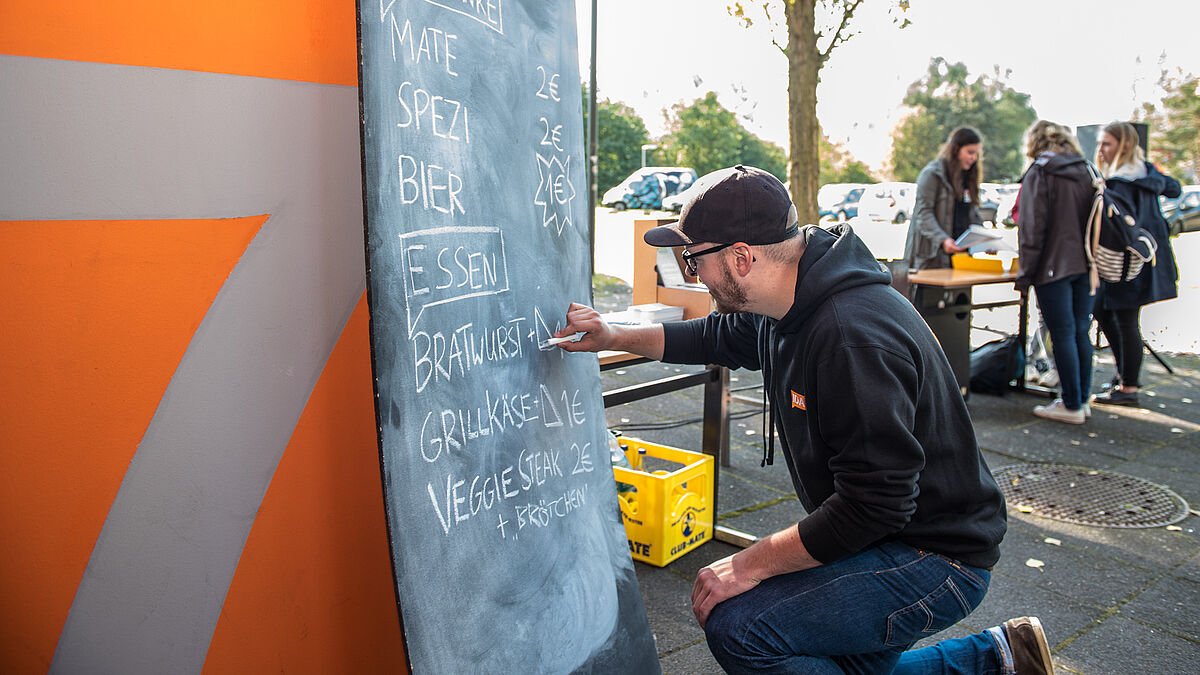 MATE 2€
SPEZI 2€
BIER 1€
ESSEN
BRATWURST +
GRILLKÄSE+ 1€
VEGGIE STEAK 2€
+ BRÖTCHEN
CLUB-MATE
7